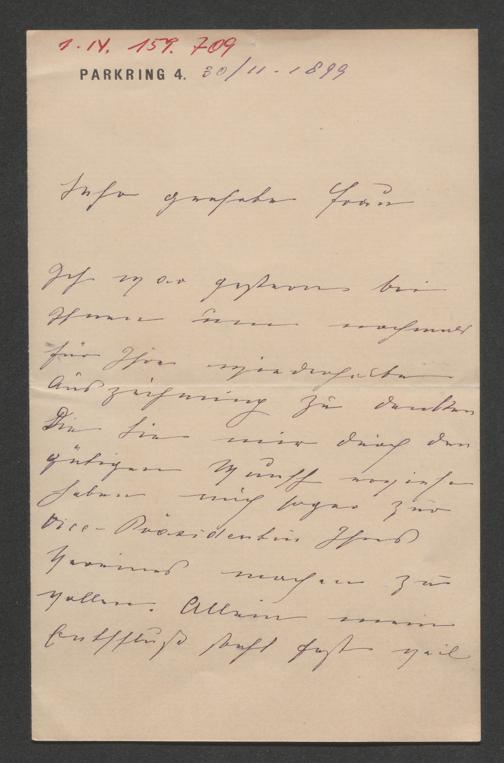 1. IV. 159. 709
PARKRING 4. 30/11. 1899
Sehr geehrte Frau
Ich war gestern bei
Ihnen um nochmals
für Ihre wiederholte
Auszeichnung zu danken
Die Sie mir durch den
gütigen Wunsch
haben mich sogar zur
Vice-Präsidentin Ihres
Vereines machen zu
wollen. Allein mein
Entschluß steht fest weil